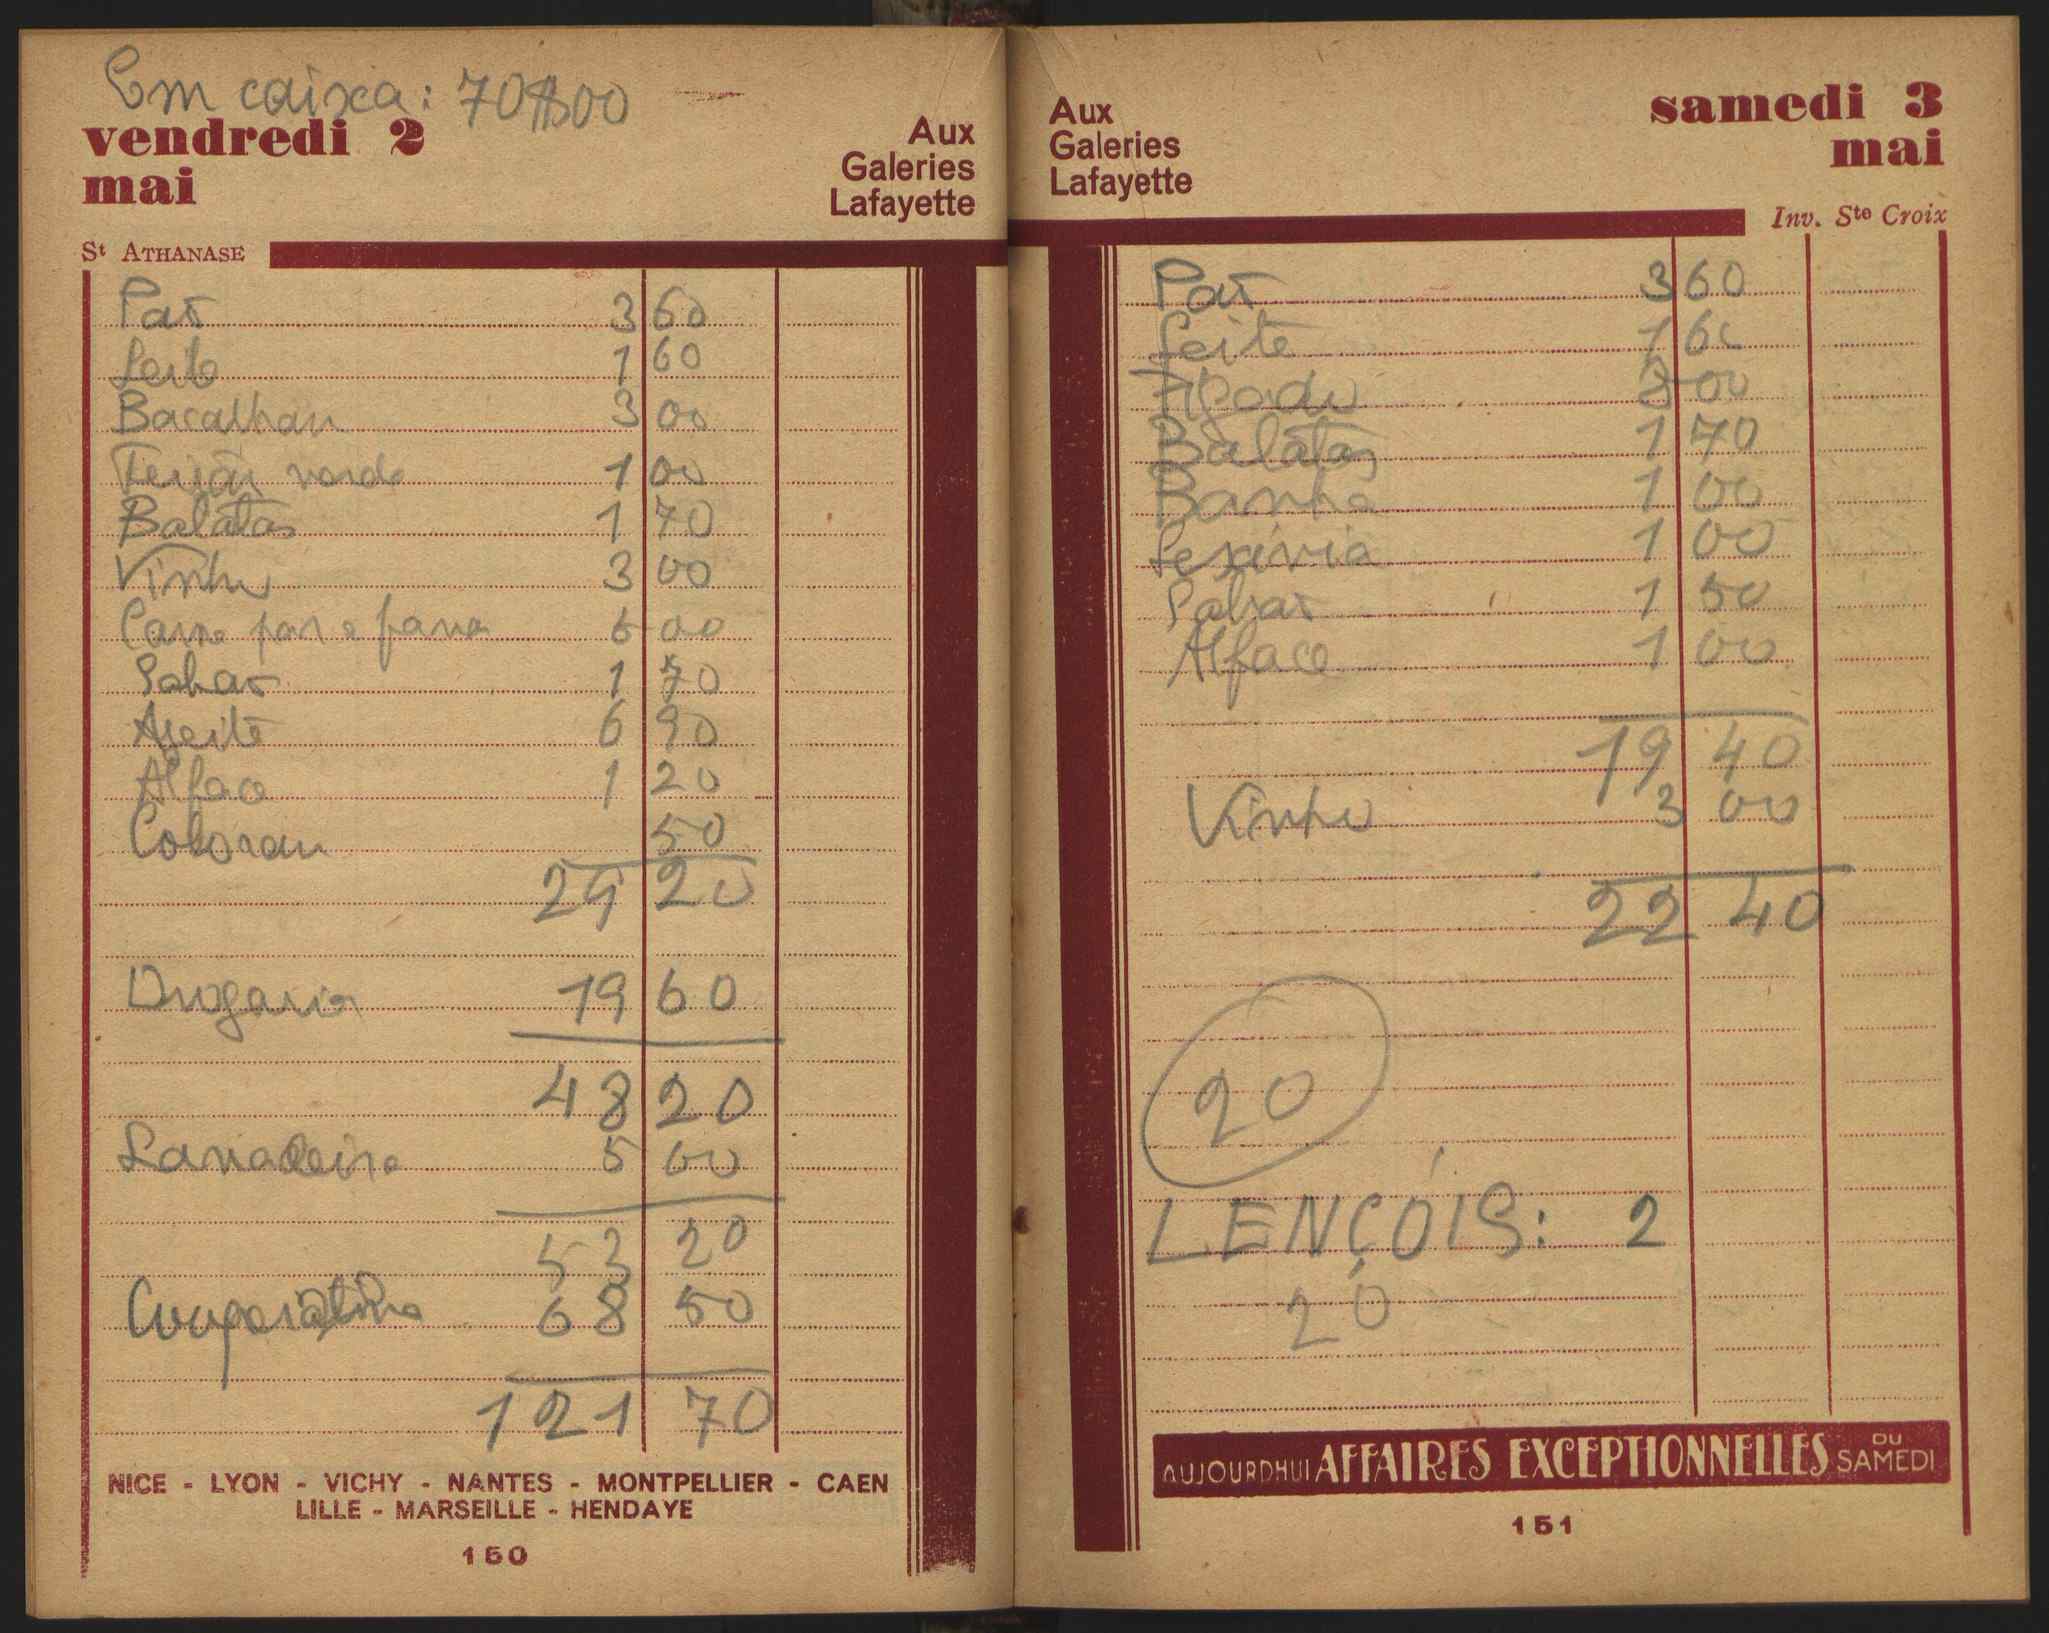 Em caixa: 70$00
vendredi 2
mai
Aux
Galeries
Lafayette
St ATHANASE
Pão 3 60
Leite 1 60
Bacalhau 3 00
Feijão verde 1 00
Batatas 1 70
Vinho 3 00
Carne para fava 6 00
Sabão 1 70
Azeite 6 90
Alface 1 20
Colorau 50
29 20
Drogaria 19 60
48 20
Lavadeira 5 00
53 20
Cooperativa 68 50
121 70
NICE - LYON - VICHY - NANTES - MONTPELLIER - CAEN
LILLE - MARSEILLE - HENDAYE
150
Aux
Galeries
Lafayette
samedi 3
mai
Inv. Ste Croix
Pão 3 60
Leite 1 60
Fígado 8 00
Batatas 1 70
Banha 1 00
Lexívia 1 00
Sabão 1 50
Alface 1 00
19 40
Vinho 3 00
22 40
20
LENÇÓIS: 2
20
AUJOURDHUI AFFAIRES EXCEPTIONNELLES DU SAMEDI
151